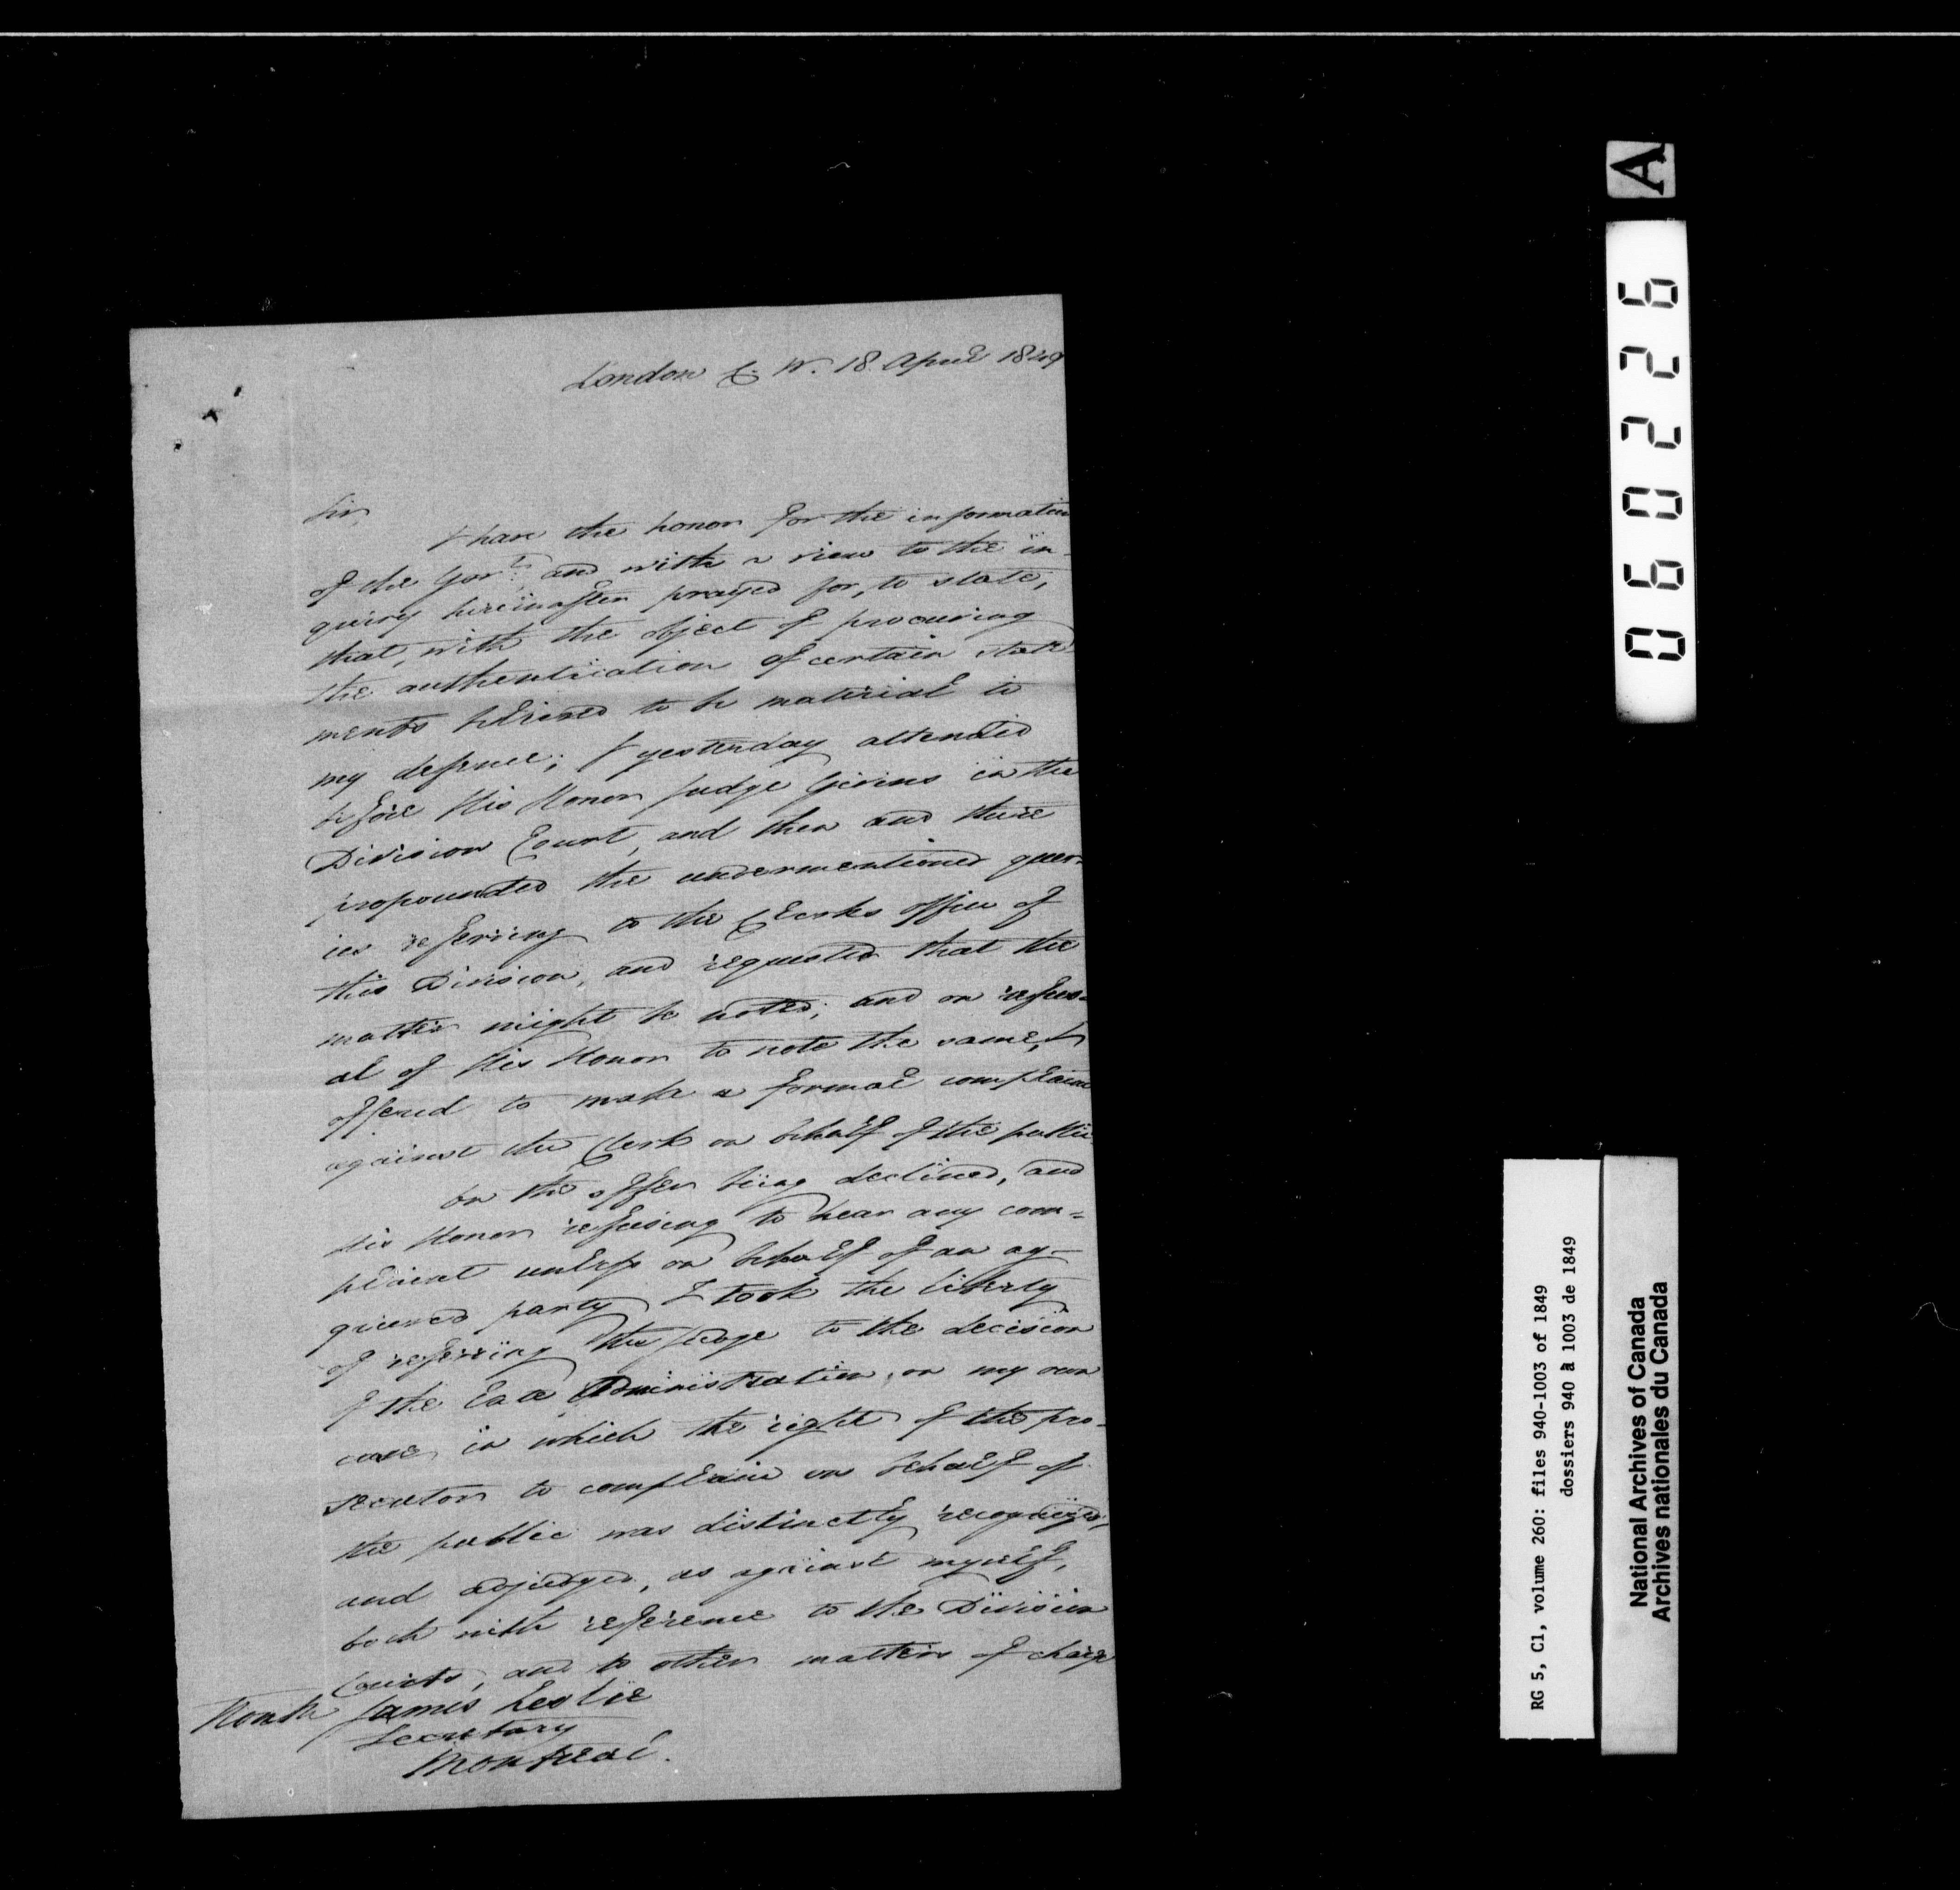 London C. W. 18 April 1849
Sir,
I have the honor for the information
of the Govt. and with a view to the in-
quiry hereinafter prayed for, to state,
that, with the object of procuring
the authentication of certain state-
ments believed to be material to
my defence; I yesterday attended
before His Honor Judge Givins in the
Division Court, and then and there
propounded the undermentioned quer-
ies referring to the Clerks office of
this Division, and requested that the
matter might be noted; and on refus-
al of His Honor to note the same, I
offered to make a formal complaint
against the Clerk on behalf of the public.
On the offer being declined, and
His Honor refusing to hear any com-
plaint unless on behalf of an ag-
grieved party I took the liberty
of referring the Judge to the decision
of the late Administration, on my own
case, in which the right of the pro-
secutor to complain on behalf of
the public was distinctly recognized,
and adjudged, as against myself,
both with reference to the Division
Courts, and to other matters of charge
Honble James Leslie
Secretary
Montreal.
A
060226
RG 5, C1, volume 260: files 940-1003 of 1849
dossiers 940 à 1003 de 1849
National Archives of Canada
Archives nationales du Canada